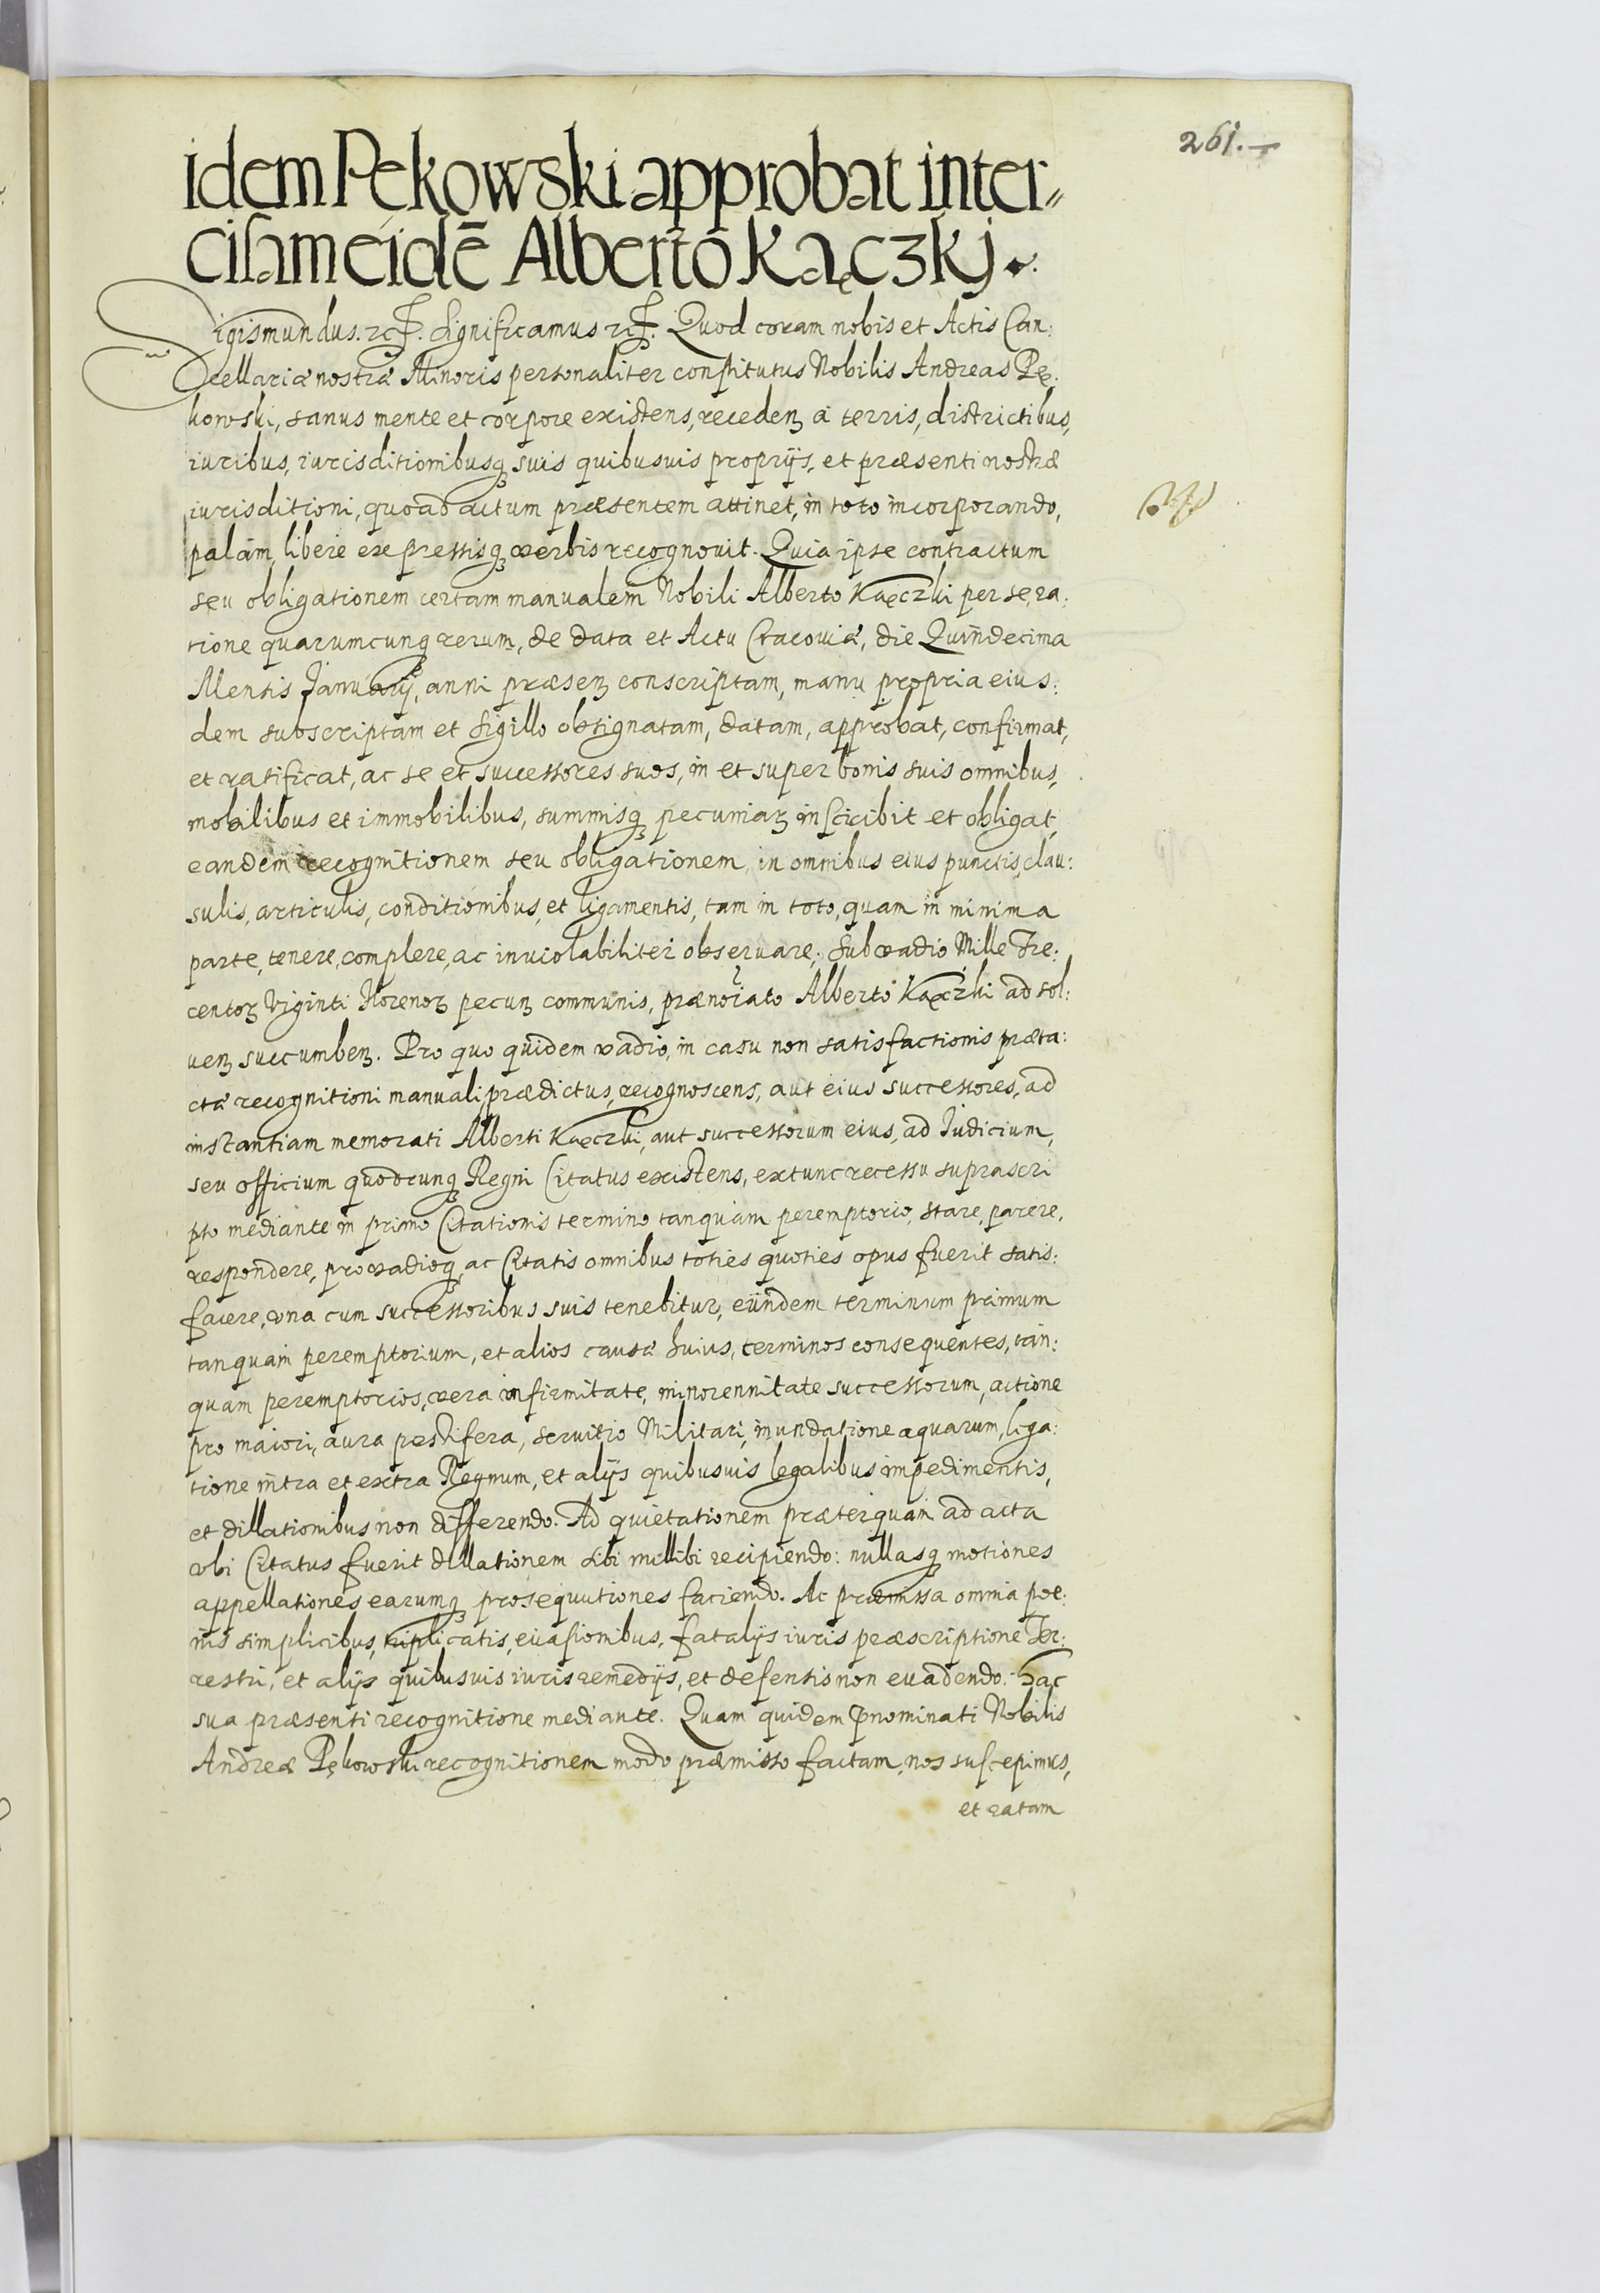 261.
idem Pękowski approbat inter=
cisam eidē Alberto Kączkj.
Sigismundus. etc. Significamus etc. Quod coram nobis et Actis Can:
cellariæ nostræ Minoris personaliter constitutus Nobilis Andreas Pę:
kowski, sanus mente et corpore existens, recedenꝫ à terris, districtibus,
iuribus, iurisditionibusqꝫ suis quibusuis proprijs, et præsenti nostræ
iurisditioni, quoad actum præsentem attinet, in toto incorporando,
palàm, libere expressisqꝫ verbis recognouit. Quia ipse contractum
seu obligationem certam manualem Nobili Alberto Kączki per se, ra:
tione quarumcunqꝫ rerum, de data et Actu Cracouiæ, die Quindecima
Mensis Januarij, anni præsenꝫ conscriptam, manu propria eius:
dem subscriptam et Sigillo obsignatam, datam, approbat, confirmat,
et ratificat, ac se et successores suos, in et super bonis suis omnibus,
mobilibus et immobilibus, summisqꝫ pecuniaꝝ inscribit et obligat,
eandem recognitionem seu obligationem, in omnibus eius punctis, clau:
sulis, articulis, conditionibus, et ligamentis, tam in toto, quam in minima
parte, tenere, complere, ac inuiolabiliter obseruare, Sub vadio Mille Tre:
centoꝝ Viginti florenoꝝ pecunꝫ communis, prænotato Alberto Kączki ad sol:
uenꝫ succumbenꝫ. Pro quo quidem vadio, in casu non satisfactionis præta:
ctæ recognitioni manuali prædictus, recognoscens, aut eius successores, ad
instantiam memorati Alberti Kączki, aut successorum eius, ad Iudicium,
seu officium quodcunqꝫ Regni Citatus existens, extunc recessu suprascri
pto mediante in primo Citationis termino tanquam peremptorio, stare, parere,
respondere, pro vadioqꝫ, ac Citatis omnibus toties quoties opus fuerit satis:
facere, vna cum successoribus suis tenebitur, eundem terminum primum
tanquam peremptorium, et alios causæ huius, terminos consequentes, tan:
quam peremptorios, vera infirmitate, minorennitate successorum, actione
pro maiori, aura pestifera, seruitio Militari, inundatione aquarum, liga:
tione intra et extra Regnum, et alijs quibusuis legalibus impedimentis,
et dillationibus non differendo. Ad quietationem præterquam ad acta
vbi Citatus fuerit dillationem sibi nullibi recipiendo: nullasqꝫ motiones
appellationes earumqꝫ prosequutiones faciendo. Ac præmissa omnia poe:
nis simplicibus, triplicatis, euasionibus, fatalijs iuris præscriptione Ter:
restri, et alijs quibusuis iuris remedijs, et defensis non euadendo. Hac
sua præsenti recognitione mediante. Quam quidem p̄nominati Nobilis
Andreæ Pękowski recognitionem modo præmisso factam, nos suscepimus,
et ratam